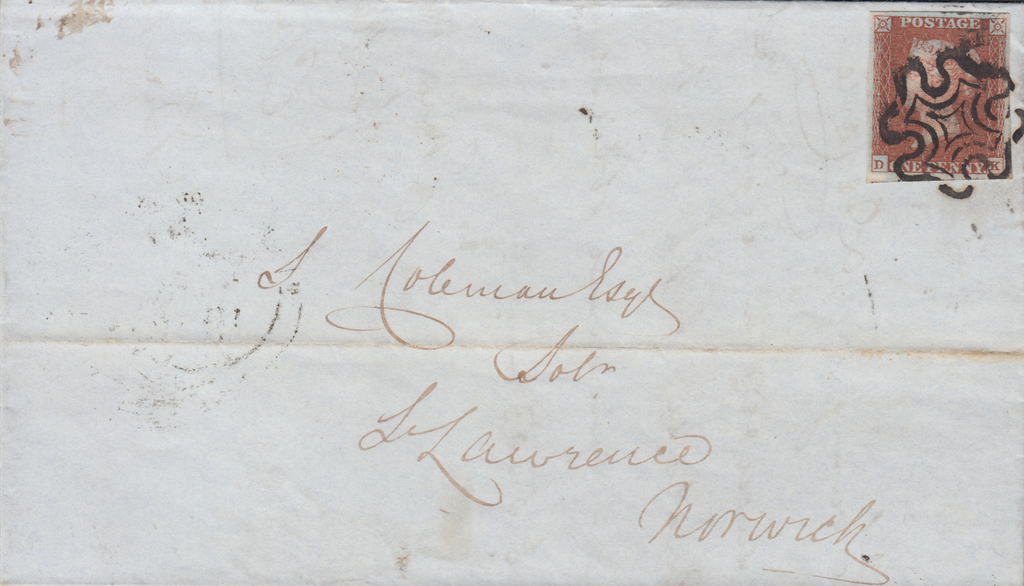 POSTAGE
D ONE PENNY K
S Coleman Esqr
Solr
St Lawrence
Norwich